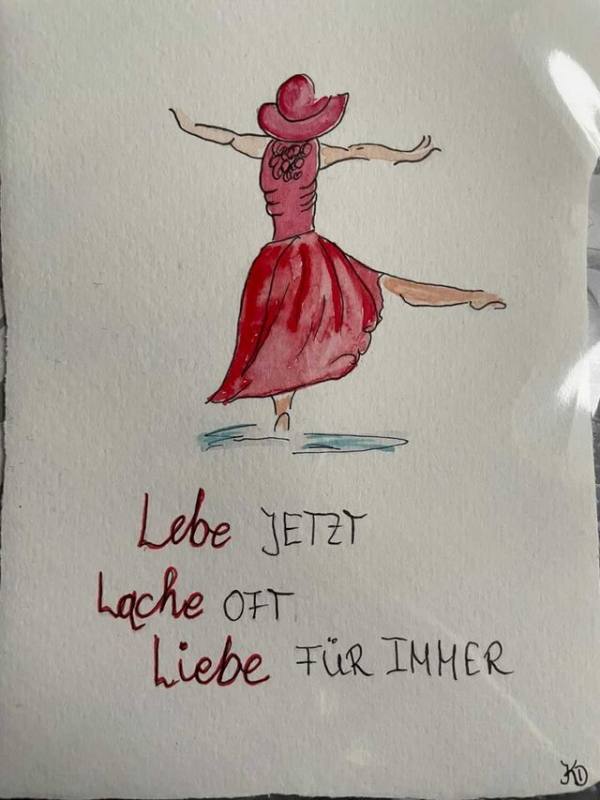 Lebe JETZT
Lache OFT
Liebe FÜR IMMER
KD